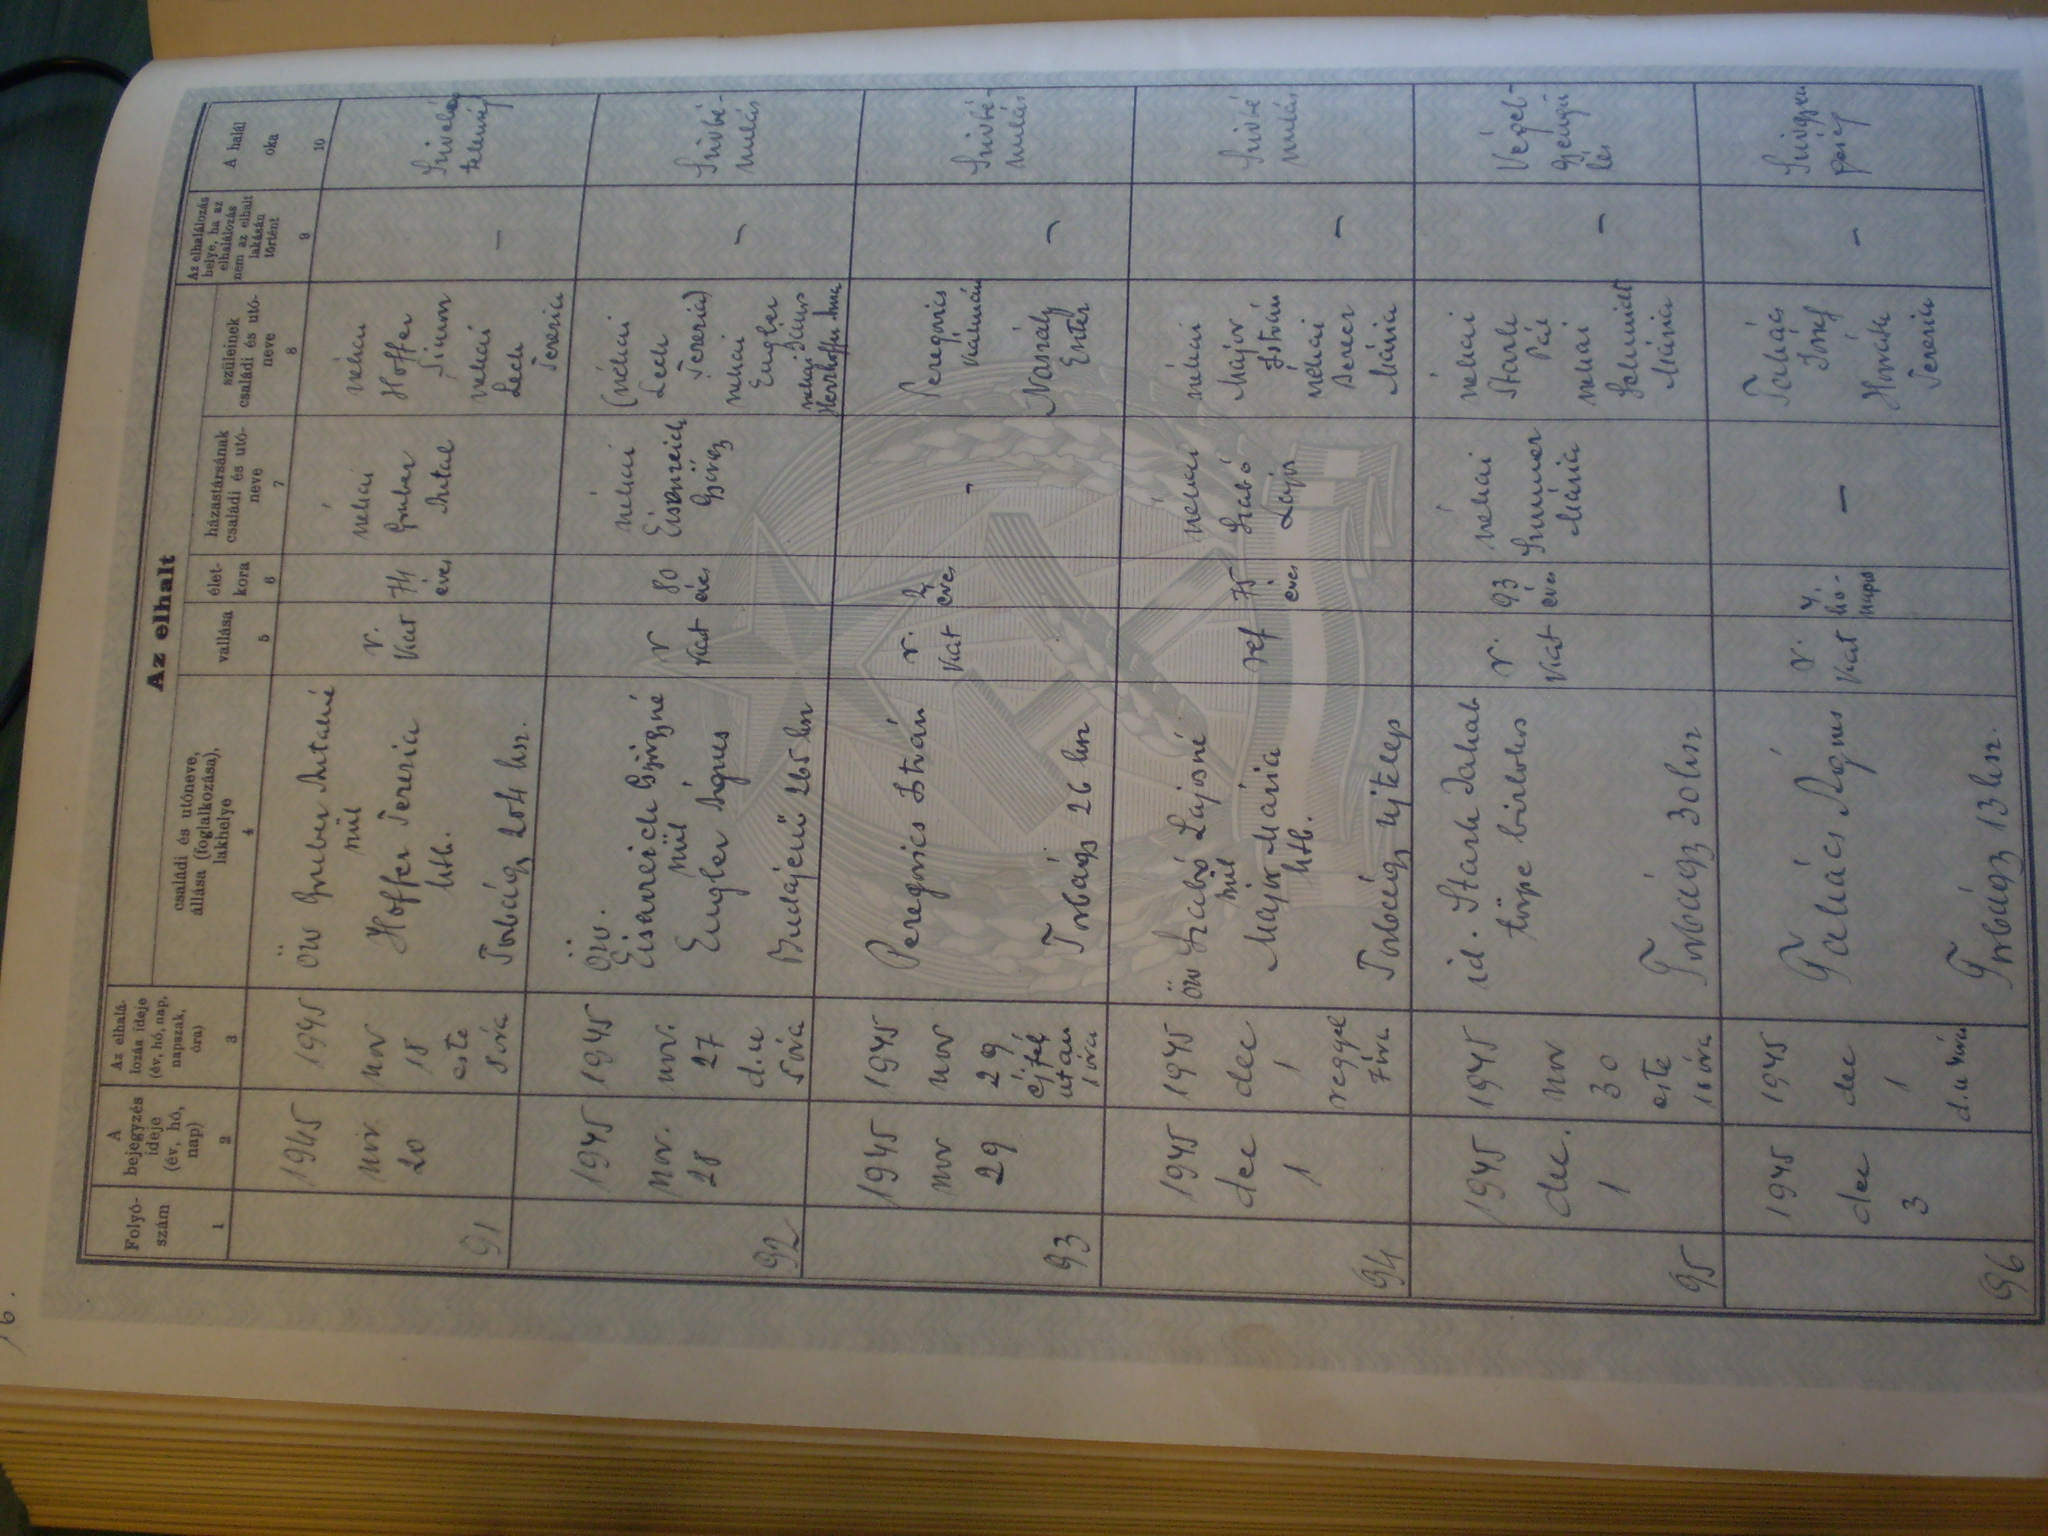 16.
Az elhalt
Folyó-
szám
A
bejegyzés
ideje
(év, hó,
nap)
Az elhalá-
lozás ideje
(év, hó, nap,
napszak,
óra)
családi és utóneve,
állása (foglalkozása),
lakhelye
vallása
élet-
kora
házastársának
családi és utó-
neve
szüleinek
családi és utó-
neve
Az elhalálozás
helye, ha az
elhalálozás
nem az elhalt
lakásán
történt
A halál
oka
1
2
3
4
5
6
7
8
9
10
91
1945
nov.
20
1945
nov
18
este
8 óra
Öw Gruber Antalné
szül
Hoffer Terezia
htb.
Torbágy 204 hsz.
r.
kat
74
éves
néhai
Gruber
Antal
néhai
Hoffer
Simon
néhai
Lech
Terezia
—
Szivelég
telenség
92
1945
nov.
28
1945
nov.
27
d.u
5 óra
Öw.
Eisenreich Györgyné
szül
Engler Ágnes
Budajenő 265 hsz
r
kat
80
éves
néhai
Eisenreich
György
(néhai
Lech
Terezia)
néhai
Engler
János
néhai
Herrhoffer Anna
—
Szivbé-
nulás
93
1945
nov
29
1945
nov
29
éjfél
után
1 óra
Peregovics István
Torbágy 26 hsz
r.
kat
2
éves
-
Peregovics
Kálmán
Naszály
Eszter
—
Szivbé-
nulás
94
1945
dec
1
1945
dec
1
reggel
7 óra
öw Szabó Lajosné
szül
Major Mária
htb.
Torbágy ujtelep
ref
75
éves
néhai
Szabó
Lajos
néhai
Major
István
néhai
Mária
—
Szivbé
nulás
95
1945
dec.
1
1945
nov
30
este
id. Stark Jakab
törpe birtokos
Torbágy 30 hsz
r.
kat
93
éves
néhai
Summer
Mária
néhai
Stark
Pál
néhai
Schmidt
Mária
—
Végel-
gyengü
lés
96
1945
dec
3
1945
dec
1
d.u 4 óra
Takács Ágnes
Torbágy 13 hsz.
r.
kat
4.
hó-
napos
—
Takács
József
Horváth
Terezia
—
Szivgyen
geség